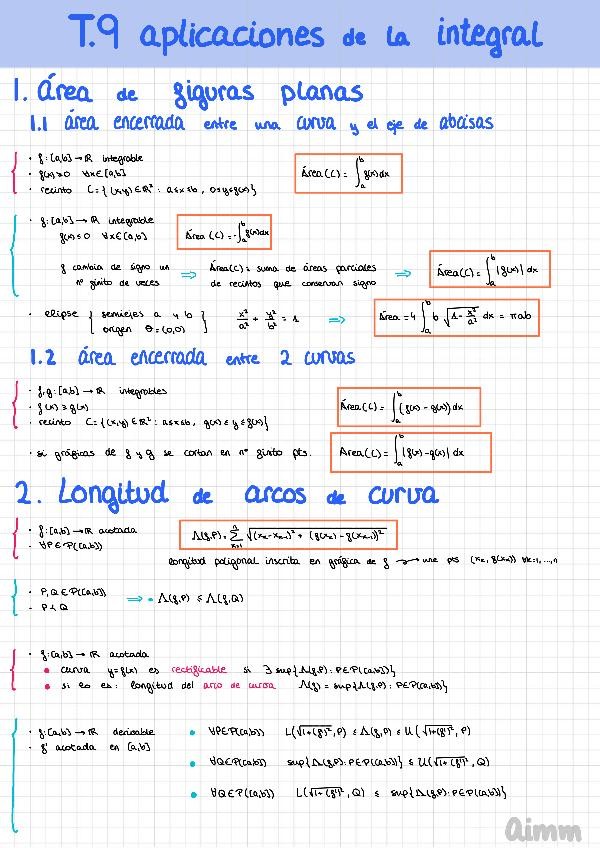 T.9 aplicaciones de la integral
1. área de figuras planas
1.1 área encerrada entre una curva y el eje de abcisas
· f: [a,b] → ℝ integrable
· f(x) ≥ 0 ∀x∈[a,b]
· recinto C = {(x,y) ∈ ℝ² : a≤x≤b, 0≤y≤f(x)}
Área(C) = ∫_a^b f(x)dx
· f: [a,b] → ℝ integrable
f(x) ≤ 0 ∀x∈[a,b]
Área (C) = -∫_a^b f(x)dx
f cambia de signo un nº finito de veces ⇒ Área(C) = suma de áreas parciales de recintos que conservan signo ⇒ Área(C) = ∫_a^b |f(x)| dx
· elipse { semiejes a y b
origen θ = (0,0) } x²/a² + y²/b² = 1 ⇒ Área = 4 ∫_a^b b √(1 - x²/a²) dx = πab
1.2 área encerrada entre 2 curvas
· f,g: [a,b] → ℝ integrables
· f(x) ≥ g(x)
· recinto C = {(x,y) ∈ ℝ² : a≤x≤b, g(x) ≤ y ≤ f(x)}
Área(C) = ∫_a^b (f(x) - g(x)) dx
· si gráficas de f y g se cortan en nº finito pts.
Área(C) = ∫_a^b |f(x) - g(x)| dx
2. Longitud de arcos de curva
· f: [a,b] → ℝ acotada
· ∀P∈P([a,b])
Λ(f,P) = Σ_{k=1}^n √((x_k - x_{k-1})² + (f(x_k) - f(x_{k-1}))²)
longitud poligonal inscrita en gráfica de f → une pts (x_k, f(x_k)) ∀k=1,...,n
· P,Q ∈ P([a,b])
· P ≺ Q
⇒ · Λ(f,P) ≤ Λ(f,Q)
· f: [a,b] → ℝ acotada
• curva y=f(x) es rectificable si ∃ sup{Λ(f,P) : P∈P([a,b])}
• si lo es: longitud del arco de curva Λ(f) = sup{Λ(f,P) : P∈P([a,b])}
· f: [a,b] → ℝ derivable
· f' acotada en [a,b]
• ∀P∈P([a,b]) L(√(1+(f')²), P) ≤ Λ(f,P) ≤ U(√(1+(f')²), P)
• ∀Q∈P([a,b]) sup{Λ(f,P) : P∈P([a,b])} ≤ U(√(1+(f')²), Q)
• ∀Q∈P([a,b]) L(√(1+(f')²), Q) ≤ sup{Λ(f,P) : P∈P([a,b])}
aimm